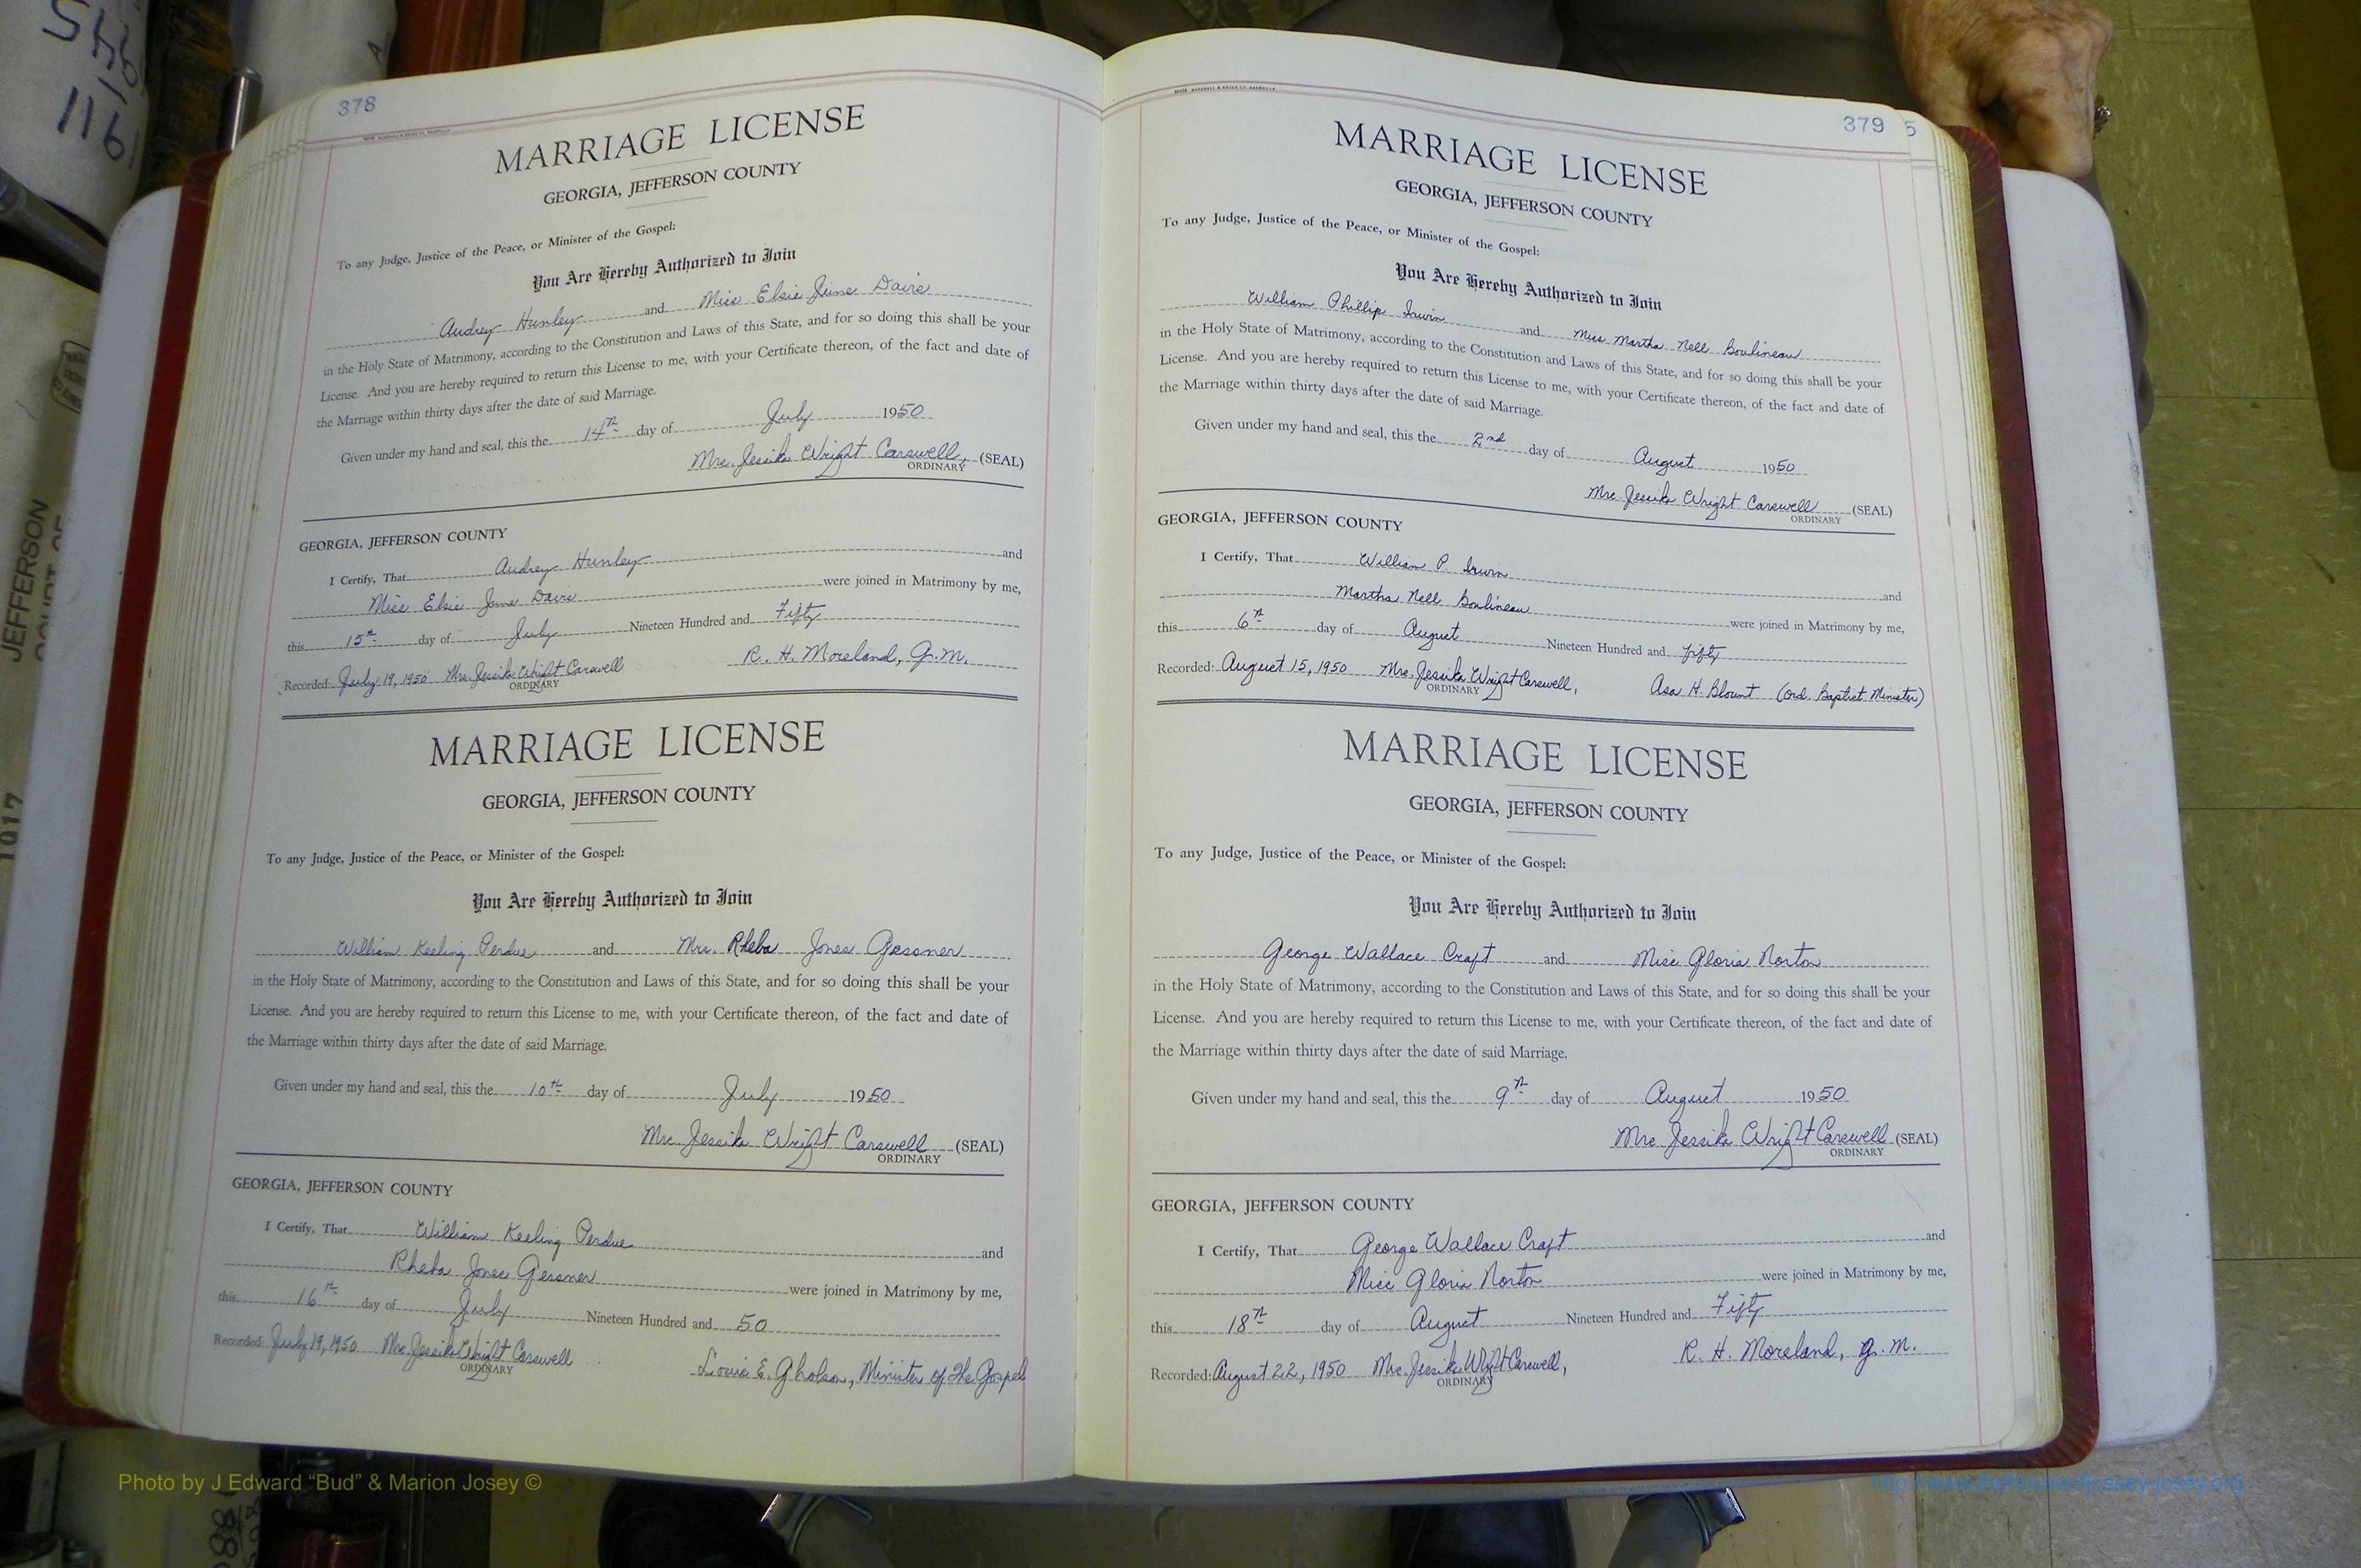 378
MARRIAGE LICENSE
GEORGIA, JEFFERSON COUNTY
To any Judge, Justice of the Peace, or Minister of the Gospel:
You Are Hereby Authorized to Join
Audrey Hunley and Miss Elsie June Davis
in the Holy State of Matrimony, according to the Constitution and Laws of this State, and for so doing this shall be your
License. And you are hereby required to return this License to me, with your Certificate thereon, of the fact and date of
the Marriage within thirty days after the date of said Marriage.
Given under my hand and seal, this the 14th day of July 1950
Mrs. Jessike Wright Carswell, (SEAL)
ORDINARY
GEORGIA, JEFFERSON COUNTY
I Certify, That Audrey Hunley and
Miss Elsie June Davis were joined in Matrimony by me,
this 15th day of July Nineteen Hundred and Fifty
R. H. Moreland, J.M.
Recorded: July 19, 1950 Mrs. Jessike Wright Carswell
ORDINARY
MARRIAGE LICENSE
GEORGIA, JEFFERSON COUNTY
To any Judge, Justice of the Peace, or Minister of the Gospel:
You Are Hereby Authorized to Join
William Keeling Perdue and Mrs. Rheba Jones Gessner
in the Holy State of Matrimony, according to the Constitution and Laws of this State, and for so doing this shall be your
License. And you are hereby required to return this License to me, with your Certificate thereon, of the fact and date of
the Marriage within thirty days after the date of said Marriage.
Given under my hand and seal, this the 10th day of July 1950
Mrs. Jessike Wright Carswell (SEAL)
ORDINARY
GEORGIA, JEFFERSON COUNTY
I Certify, That William Keeling Perdue and
Rheba Jones Gessner were joined in Matrimony by me,
this 16th day of July Nineteen Hundred and 50
Recorded: July 19, 1950 Mrs. Jessike Wright Carswell
ORDINARY
Louie E. Gholson, Minister of The Gospel
379
MARRIAGE LICENSE
GEORGIA, JEFFERSON COUNTY
To any Judge, Justice of the Peace, or Minister of the Gospel:
You Are Hereby Authorized to Join
William Phillip Irwin and Miss Martha Nell Boulineau
in the Holy State of Matrimony, according to the Constitution and Laws of this State, and for so doing this shall be your
License. And you are hereby required to return this License to me, with your Certificate thereon, of the fact and date of
the Marriage within thirty days after the date of said Marriage.
Given under my hand and seal, this the 2nd day of August 1950
Mrs. Jessike Wright Carswell (SEAL)
ORDINARY
GEORGIA, JEFFERSON COUNTY
I Certify, That William P. Irwin
Martha Nell Boulineau and
were joined in Matrimony by me,
this 6th day of August Nineteen Hundred and fifty
Recorded: August 15, 1950 Mrs. Jessike Wright Carswell, Asa H. Blount (ord. Baptist Minister)
ORDINARY
MARRIAGE LICENSE
GEORGIA, JEFFERSON COUNTY
To any Judge, Justice of the Peace, or Minister of the Gospel:
You Are Hereby Authorized to Join
George Wallace Craft and Miss Gloria Norton
in the Holy State of Matrimony, according to the Constitution and Laws of this State, and for so doing this shall be your
License. And you are hereby required to return this License to me, with your Certificate thereon, of the fact and date of
the Marriage within thirty days after the date of said Marriage.
Given under my hand and seal, this the 9th day of August 1950
Mrs Jessike Wright Carswell (SEAL)
ORDINARY
GEORGIA, JEFFERSON COUNTY
I Certify, That George Wallace Craft and
Miss Gloria Norton were joined in Matrimony by me,
this 18th day of August Nineteen Hundred and Fifty
R. H. Moreland, J.M.
Recorded: August 22, 1950 Mrs. Jessike Wright Carswell,
ORDINARY
116
JEFFERSON
1917
Photo by J Edward “Bud” & Marion Josey ©